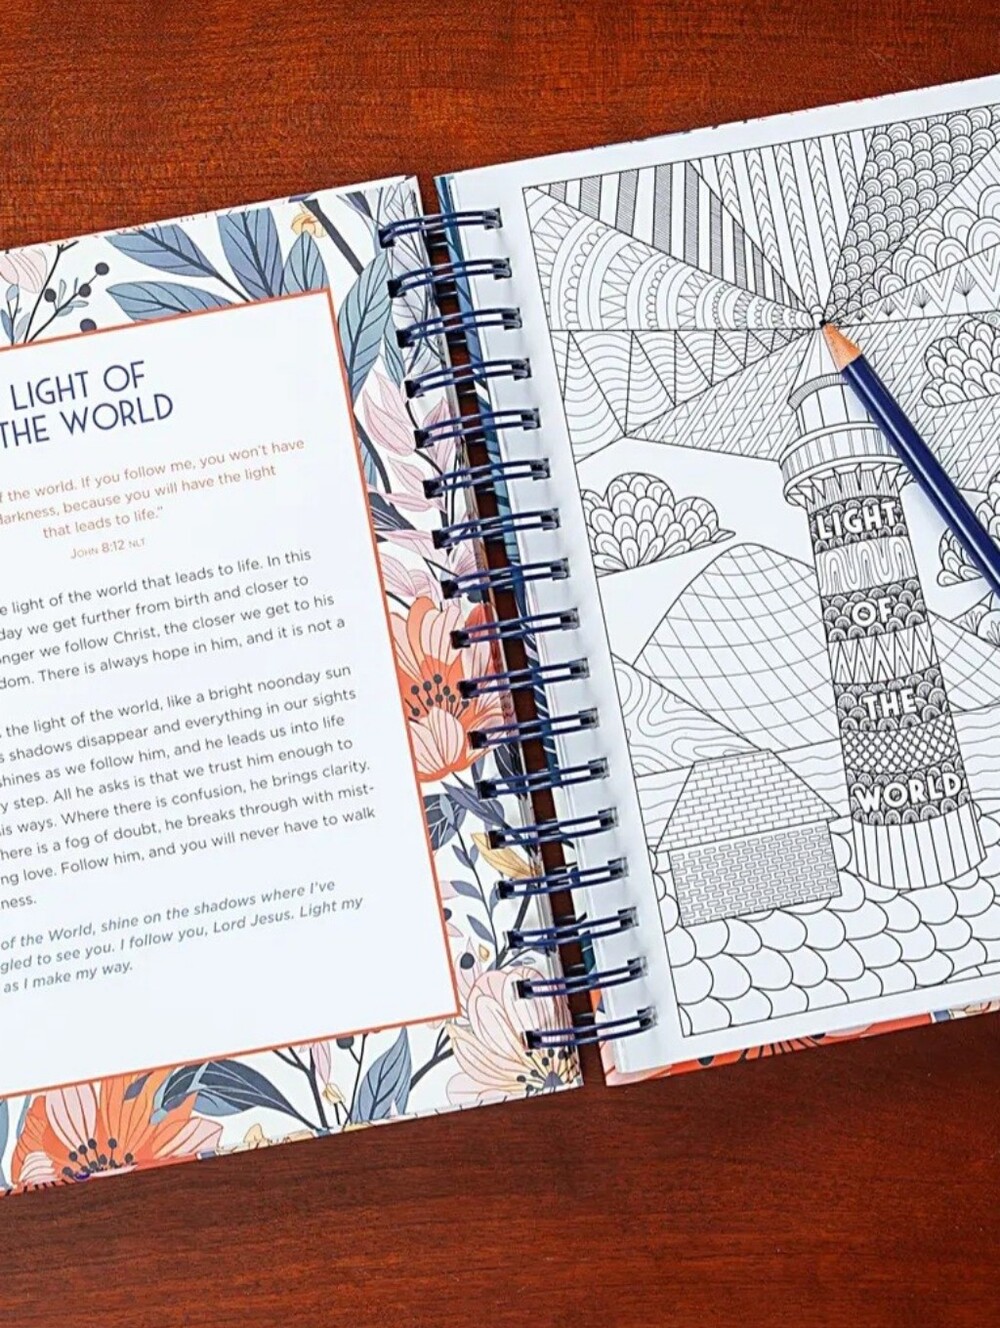 LIGHT OF
THE WORLD
the world. If you follow me, you won't have
darkness, because you will have the light
that leads to life."
JOHN 8:12 NLT
light of the world that leads to life. In this
day we get further from birth and closer to
we follow Christ, the closer we get to his
There is always hope in him, and it is not a
the light of the world, like a bright noonday sun
shadows disappear and everything in our sights
shines as we follow him, and he leads us into life
step. All he asks is that we trust him enough to
ways. Where there is confusion, he brings clarity.
here is a fog of doubt, he breaks through with mist-
ng love. Follow him, and you will never have to walk
ness.
of the World, shine on the shadows where I've
gled to see you. I follow you, Lord Jesus. Light my
as I make my way.
LIGHT
OF
THE
WORLD